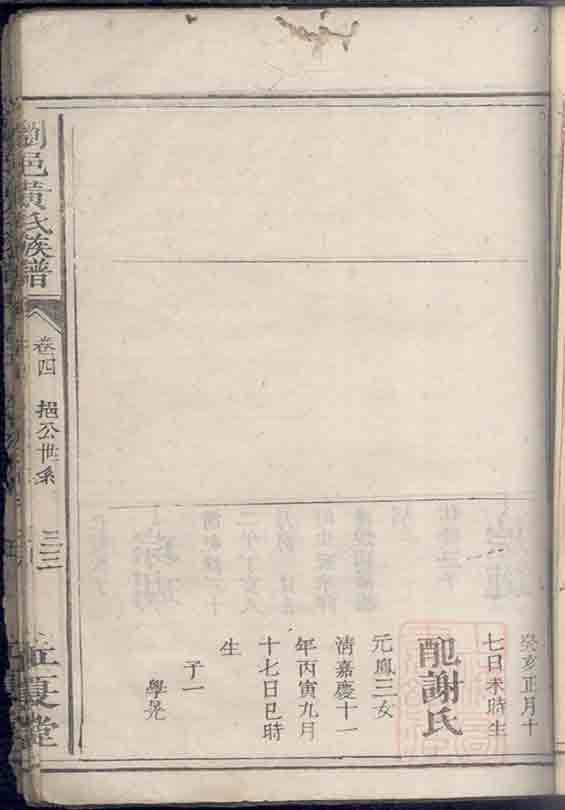 癸亥正月十
七日未時生
配謝氏
元鳳三女
清嘉慶十一
年丙寅九月
十七日巳時
生
子一
學晃
瀏邑黃氏族譜
卷四
挹公世系
三三
江夏堂